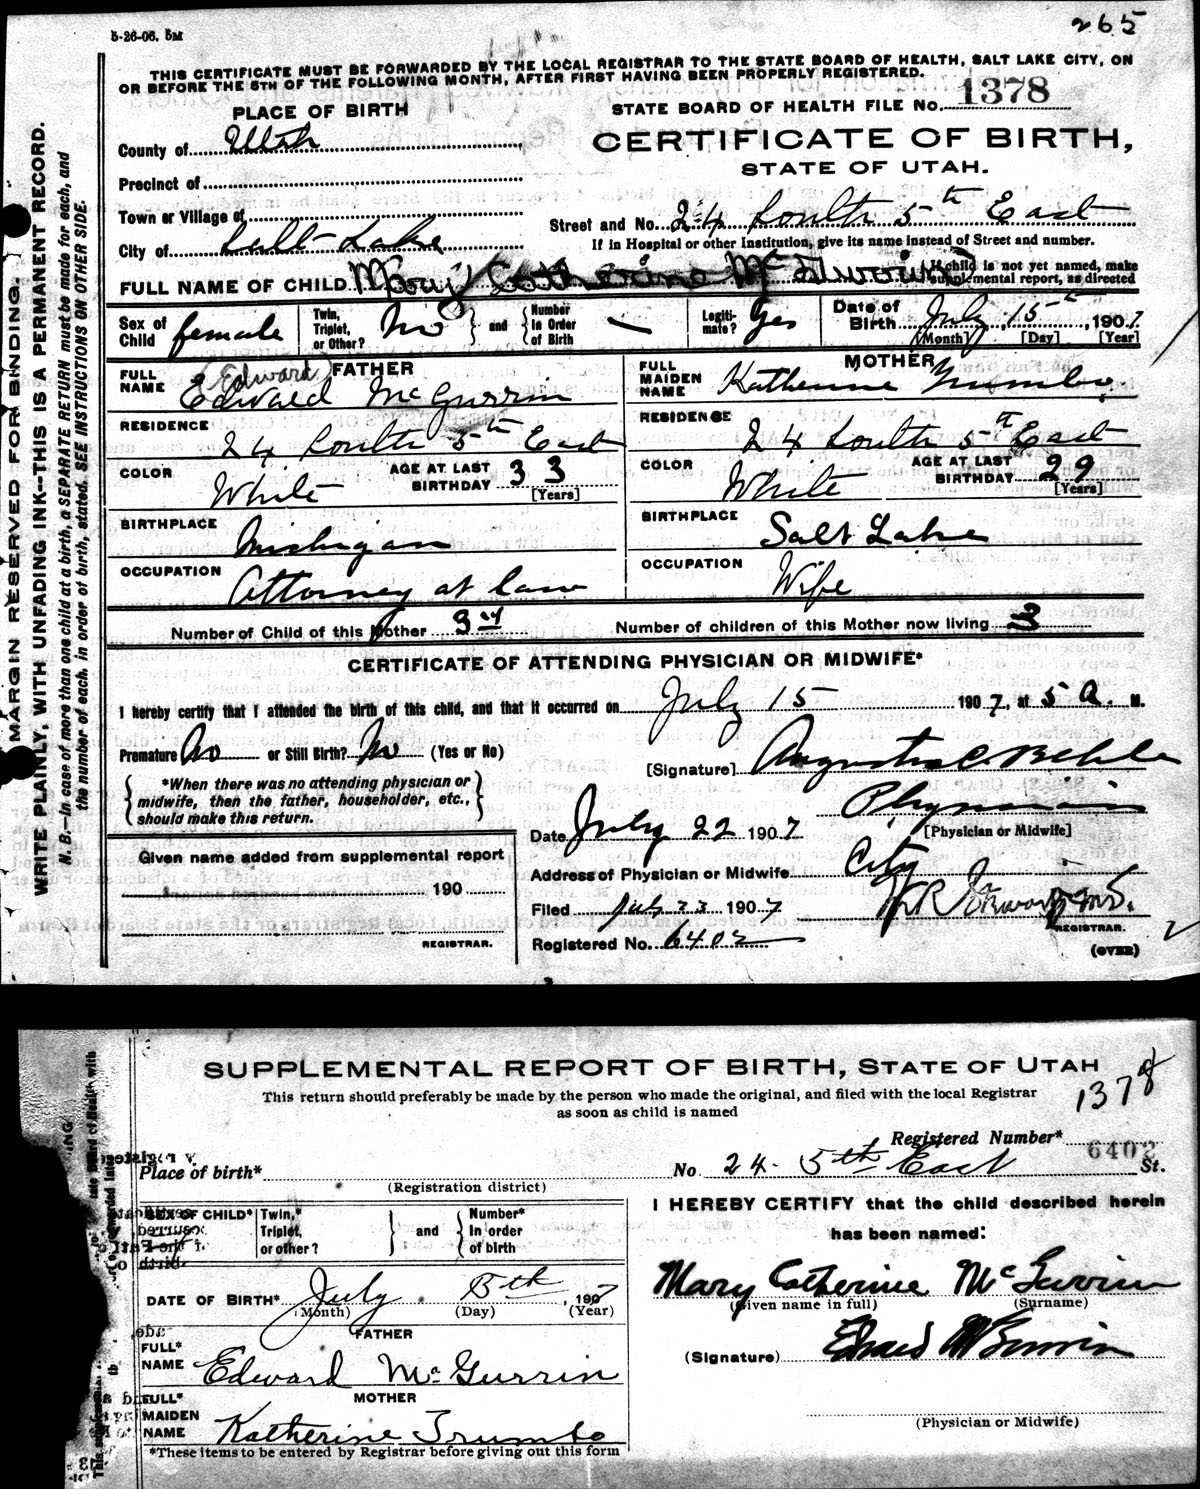 5-26-06. 5M
265
THIS CERTIFICATE MUST BE FORWARDED BY THE LOCAL REGISTRAR TO THE STATE BOARD OF HEALTH, SALT LAKE CITY, ON
OR BEFORE THE 5TH OF THE FOLLOWING MONTH, AFTER FIRST HAVING BEEN PROPERLY REGISTERED.
PLACE OF BIRTH
STATE BOARD OF HEALTH FILE NO. 1378
County of Utah
CERTIFICATE OF BIRTH,
STATE OF UTAH.
Precinct of
Town or Village of
Street and No. 24 South 5th East
City of Salt Lake
If in Hospital or other Institution, give its name instead of Street and number.
FULL NAME OF CHILD Mary Catherine McGurrin
If child is not yet named, make
supplemental report, as directed
Sex of Child female
Twin, Triplet, or Other? No and Number in Order of Birth
Legitimate? Yes
Date of Birth July 15th, 1907
[Month] [Day] [Year]
FATHER
FULL NAME (Edward) Edward McGurrin
RESIDENCE 24 South 5th East
COLOR White
AGE AT LAST BIRTHDAY 33 [Years]
BIRTHPLACE Michigan
OCCUPATION Attorney at law
MOTHER
FULL MAIDEN NAME Katherine Trumbo
RESIDENCE 24 South 5th East
COLOR White
AGE AT LAST BIRTHDAY 29 [Years]
BIRTHPLACE Salt Lake
OCCUPATION Wife
Number of Child of this Mother 3rd
Number of children of this Mother now living 3
CERTIFICATE OF ATTENDING PHYSICIAN OR MIDWIFE*
I hereby certify that I attended the birth of this child, and that it occurred on July 15 1907, at 5 A. M.
Premature No or Still Birth? No (Yes or No)
[Signature] Augustus C. Behle
*When there was no attending physician or
midwife, then the father, householder, etc.,
should make this return.
Physician
[Physician or Midwife]
Date July 22 1907
Given name added from supplemental report
190
REGISTRAR.
Address of Physician or Midwife City
Filed July 23 1907
REGISTRAR.
Registered No. 6402
(OVER)
MARGIN RESERVED FOR BINDING.
WRITE PLAINLY, WITH UNFADING INK--THIS IS A PERMANENT RECORD.
N. B.--In case of more than one child at a birth, a SEPARATE RETURN must be made for each, and
the number of each, in order of birth, stated. SEE INSTRUCTIONS ON OTHER SIDE.
SUPPLEMENTAL REPORT OF BIRTH, STATE OF UTAH
This return should preferably be made by the person who made the original, and filed with the local Registrar
as soon as child is named
1378
Registered Number* 6402
Place of birth* No. 24. 5th East St.
(Registration district)
SEX OF CHILD*
Twin,* Triplet, or other? and Number* in order of birth
I HEREBY CERTIFY that the child described herein
has been named:
DATE OF BIRTH* July 15th, 1907
(Month) (Day) (Year)
Mary Catherine McGurrin
(Given name in full) (Surname)
FATHER
FULL* NAME Edward McGurrin
(Signature) Edward McGurrin
MOTHER
FULL* MAIDEN NAME Katherine Trumbo
(Physician or Midwife)
*These items to be entered by Registrar before giving out this form